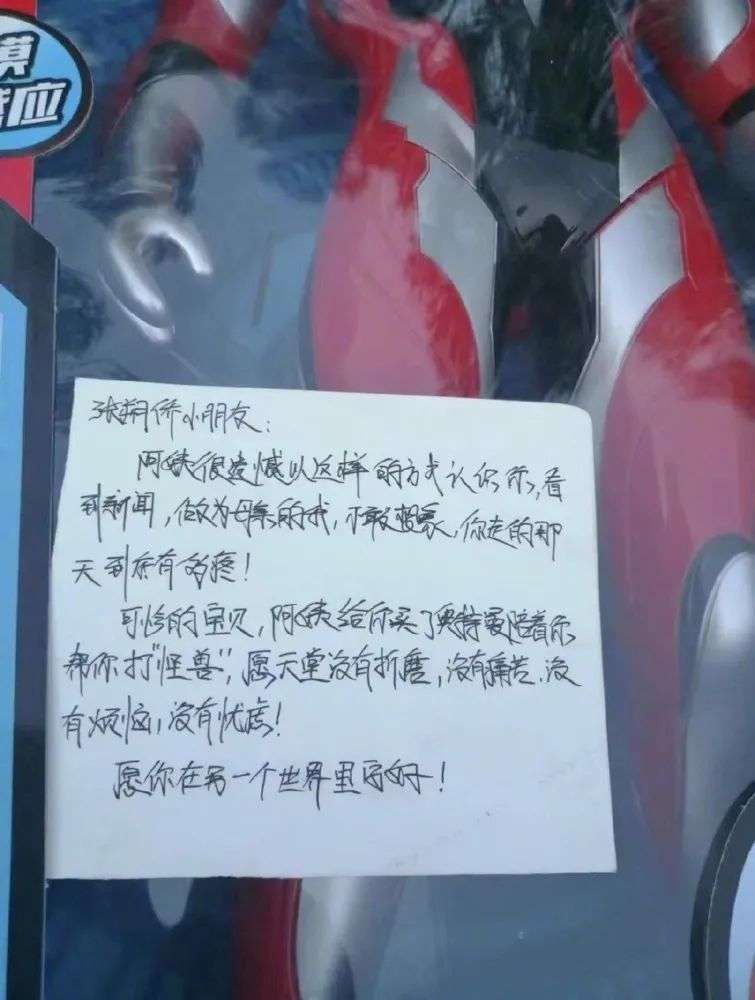 应
张朔侨小朋友：
阿姨很遗憾以这样的方式认识你，看
到新闻，做为母亲的我，不敢想象，你走的那
天到底有多疼！
可怜的宝贝，阿姨给你买了奥特曼陪着你
帮你打"怪兽"，愿天堂没有折磨，没有痛苦、没
有烦恼，没有忧虑！
愿你在另一个世界里安好！